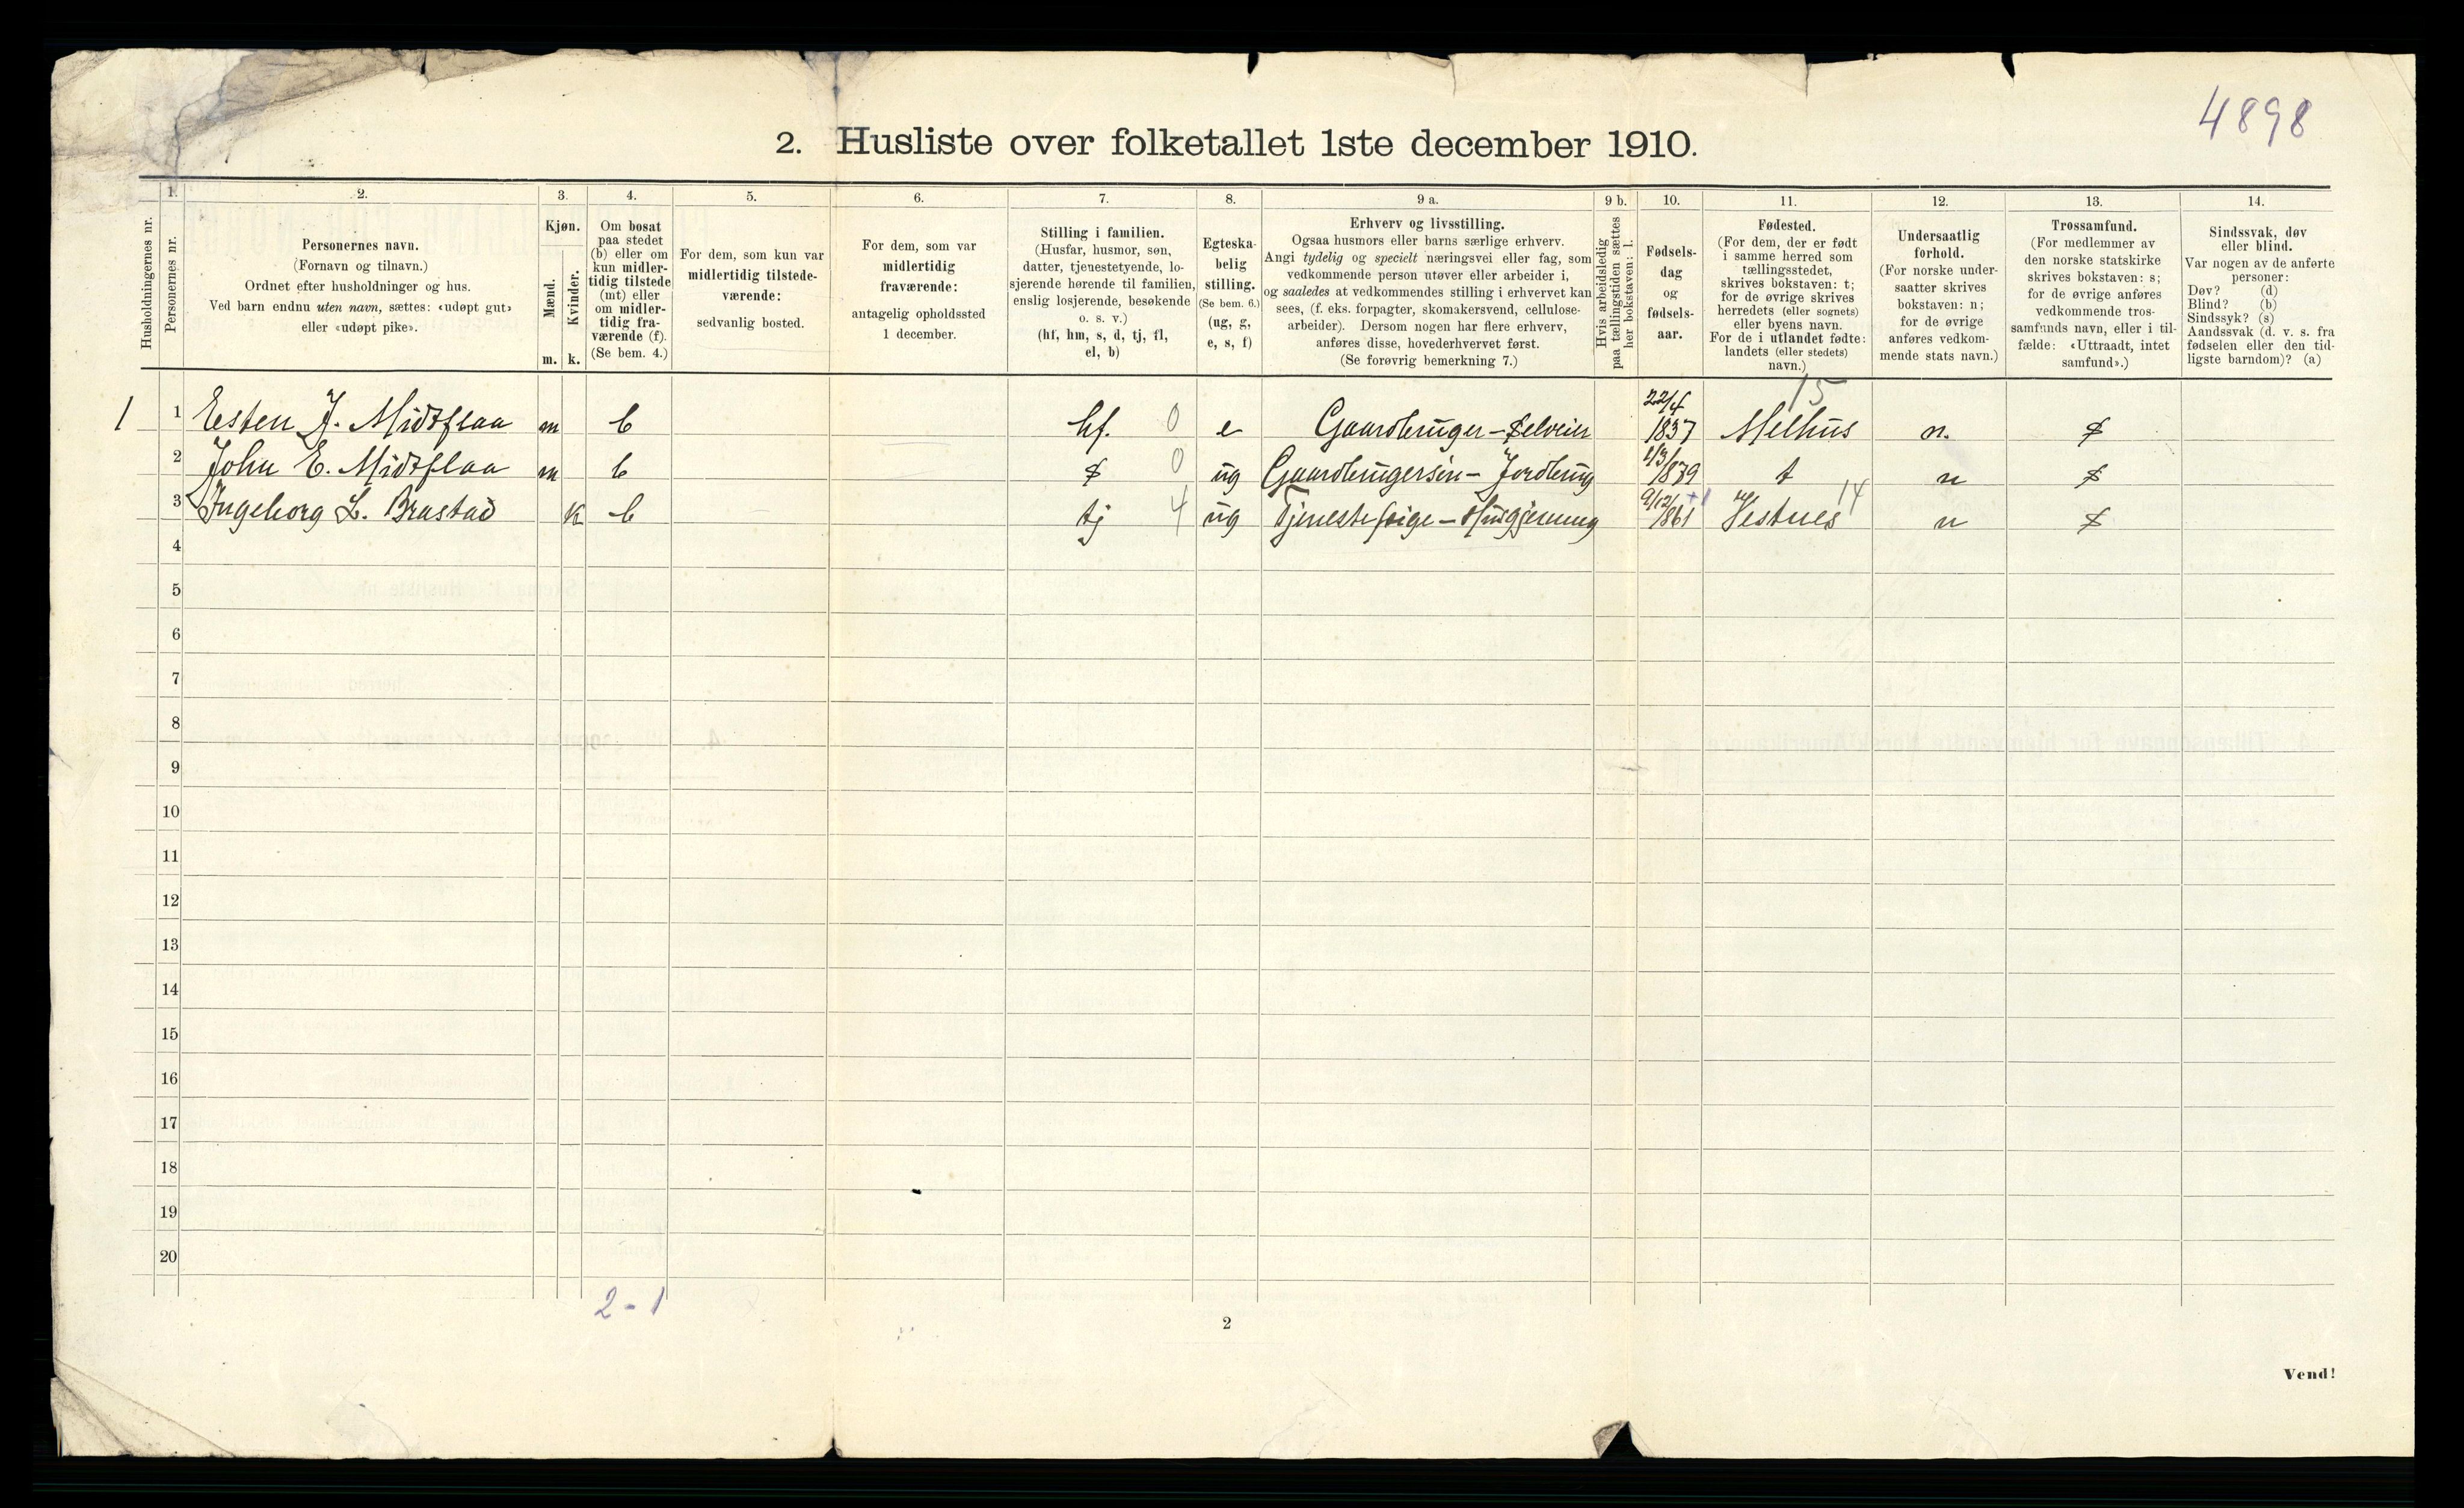 4898
2. Husliste over folketallet 1ste december 1910.
Husholdningernes nr.
1.
Personernes nr.
2.
Personernes navn.
(Fornavn og tilnavn.)
Ordnet efter husholdninger og hus.
Ved barn endnu uten navn, sættes: «udøpt gut»
eller «udøpt pike».
3.
Kjøn.
Mænd.
Kvinder.
m. k.
4.
Om bosat
paa stedet
(b) eller om
kun midler-
tidig tilstede
(mt) eller
om midler-
tidig fra-
værende (f).
(Se bem. 4.)
5.
For dem, som kun var
midlertidig tilstede-
værende:
sedvanlig bosted.
6.
For dem, som var
midlertidig
fraværende:
antagelig opholdssted
1 december.
7.
Stilling i familien.
(Husfar, husmor, søn,
datter, tjenestetyende, lo-
sjerende hørende til familien,
enslig losjerende, besøkende
o. s. v.)
(hf, hm, s, d, tj, fl,
el, b)
8.
Egteska-
belig
stilling.
(Se bem. 6.)
(ug, g,
e, s, f)
9 a.
Erhverv og livsstilling.
Ogsaa husmors eller barns særlige erhverv.
Angi tydelig og specielt næringsvei eller fag, som
vedkommende person utøver eller arbeider i,
og saaledes at vedkommendes stilling i erhvervet kan
sees, (f. eks. forpagter, skomakersvend, cellulose-
arbeider). Dersom nogen har flere erhverv,
anføres disse, hovederhvervet først.
(Se forøvrig bemerkning 7.)
9 b.
Hvis arbeidsledig
paa tællingstiden sættes
her bokstaven: l.
10.
Fødsels-
dag
og
fødsels-
aar.
11.
Fødested.
(For dem, der er født
i samme herred som
tællingsstedet,
skrives bokstaven: t;
for de øvrige skrives
herredets (eller sognets)
eller byens navn.
For de i utlandet fødte:
landets (eller stedets)
navn.)
12.
Undersaatlig
forhold.
(For norske under-
saatter skrives
bokstaven: n;
for de øvrige
anføres vedkom-
mende stats navn.)
13.
Trossamfund.
(For medlemmer av
den norske statskirke
skrives bokstaven: s;
for de øvrige anføres
vedkommende tros-
samfunds navn, eller i til-
fælde: «Uttraadt, intet
samfund».)
14.
Sindssvak, døv
eller blind.
Var nogen av de anførte
personer:
Døv? (d)
Blind? (b)
Sindssyk? (s)
Aandssvak (d. v. s. fra
fødselen eller den tid-
ligste barndom)? (a)
1 1 Esten J. Midtflaa m b hf. 0 e Gaardbruger - Selveier 22/4 1837 Melhus 15 n. s
2 John E. Midtflaa m b s 0 ug Gaardbrugersøn - Jordbrug 1879 t n s
3 Ingeborg L. Brastad k b tj 4 ug Tjenestepige - Husgjerning 9/12 1861 Vestnes 14 n s
4
5
6
7
8
9
10
11
12
13
14
15
16
17
18
19
20
2 - 1
2
Vend!